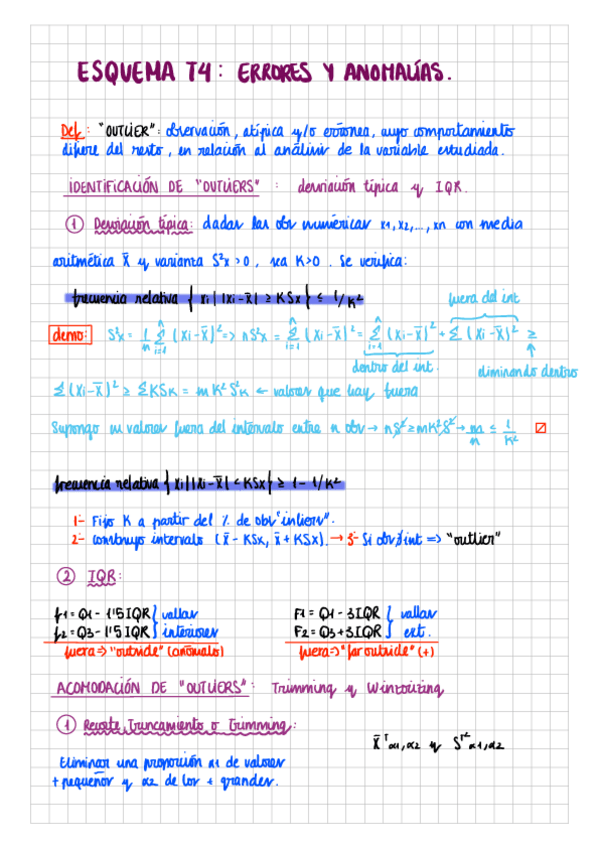 ESQUEMA T4: ERRORES Y ANOMALÍAS.
Def: "OUTLIER": observación, atípica y/o errónea, cuyo comportamiento
difiere del resto, en relación al análisis de la variable estudiada.
IDENTIFICACIÓN DE "OUTLIERS" : desviación típica y IQR.
① Desviación típica: dadas las obv numéricas x1, x2,..., xn con media
aritmética X̄ y varianza S²x > 0, sea K>0. Se verifica:
frecuencia relativa { xi | |xi - x̄| ≥ KSx } ≤ 1/K²
fuera del int
demo: S²x = 1/n Σ (xi - x̄)² => nS²x = Σ (xi - x̄)² = Σ (xi - x̄)² + Σ (xi - x̄)² ≥
dentro del int. eliminando dentro
Σ (xi - x̄)² ≥ ΣKSK = mK²S²K ← valores que hay fuera
Supongo m valores fuera del intervalo entre n obv → nS² ≥ mK²S² → m/n ≤ 1/K²
frecuencia relativa { xi | |xi - x̄| < KSx } ≥ 1 - 1/K²
1- Fijo K a partir del % de obv "inliers".
2- construyo intervalo (x̄ - KSx, x̄ + KSx). → 3- Si obv ∉ int => "outlier"
② IQR:
f1 = Q1 - 1'5IQR } vallas F1 = Q1 - 3IQR } vallas
f2 = Q3 - 1'5IQR } interiores F2 = Q3 + 3IQR } ext.
fuera => "outside" (anómalo) fuera => "far outside" (+)
ACOMODACIÓN DE "OUTLIERS": Trimming y Winsorizing
① Recorte, Truncamiento o Trimming:
X̄ᵀα1,α2 y Sᵀ²α1,α2
Eliminar una proporción α1 de valores
+ pequeños y α2 de los + grandes.